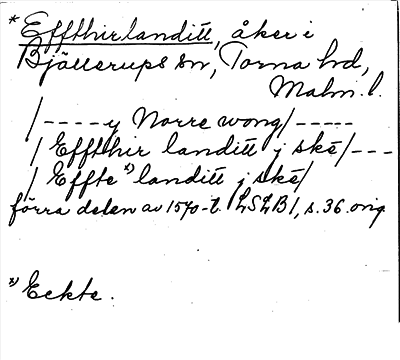 * Effthirlanditt, åker i
Bjällerups sn, Torna hd,
Malm. l.
/----y Norre wong/-----
/ Effthir landitt j skē/---
/ Effte x) landitt j skē/
förra delen av 1570-t. LSLB 1, s. 36. orig.
x) Eckte.